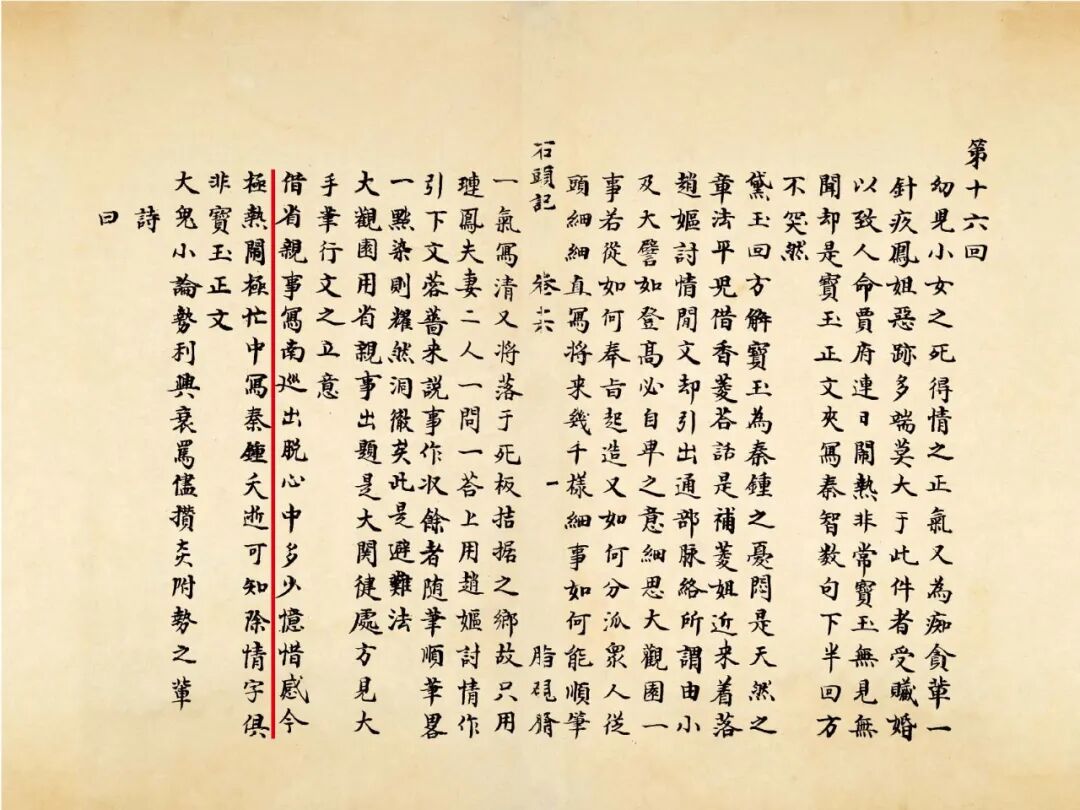 第十六回
幼兒小女之死得情之正氣又為痴貪輩一
針疚鳳姐惡跡多端莫大于此件者受贓婚
以致人命賈府連日鬧熱非常寶玉無見無
聞却是寶玉正文夾寫秦智数句下半回方
不突然
黛玉回方解寶玉為秦鍾之憂悶是天然之
章法平兒借香菱荅話是補菱姐近来着落
趙嫗討情閒文却引出通部脉絡所謂由小
及大譬如登高必自卑之意細思大觀園一
事若從如何奉旨起造又如何分派眾人從
頭細細直寫将来幾千樣細事如何能順筆
石頭記 卷十六 一 脂硯齋
一氣寫清又將落于死板拮据之鄉故只用
璉鳳夫妻二人一問一荅上用趙嫗討情作
引下文蓉薔来説事作収餘者随筆順筆畧
一點染則耀然洞徹矣此是避難法
大觀園用省親事出題是大関键處方見大
手筆行文之立意
借省親事寫南巡出脱心中多少憶惜感今
極熱鬧極忙中寫秦鍾夭逝可知除情字俱
非寶玉正文
大鬼小論勢利興衰罵儘攢炎附勢之輩
詩
曰